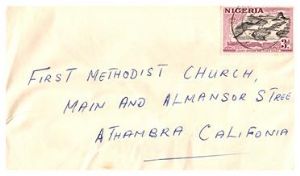 NIGERIA
3d
FIRST METHODIST CHURCH,
MAIN AND ALMANSOR STREE
ATHAMBRA CALIFONIA